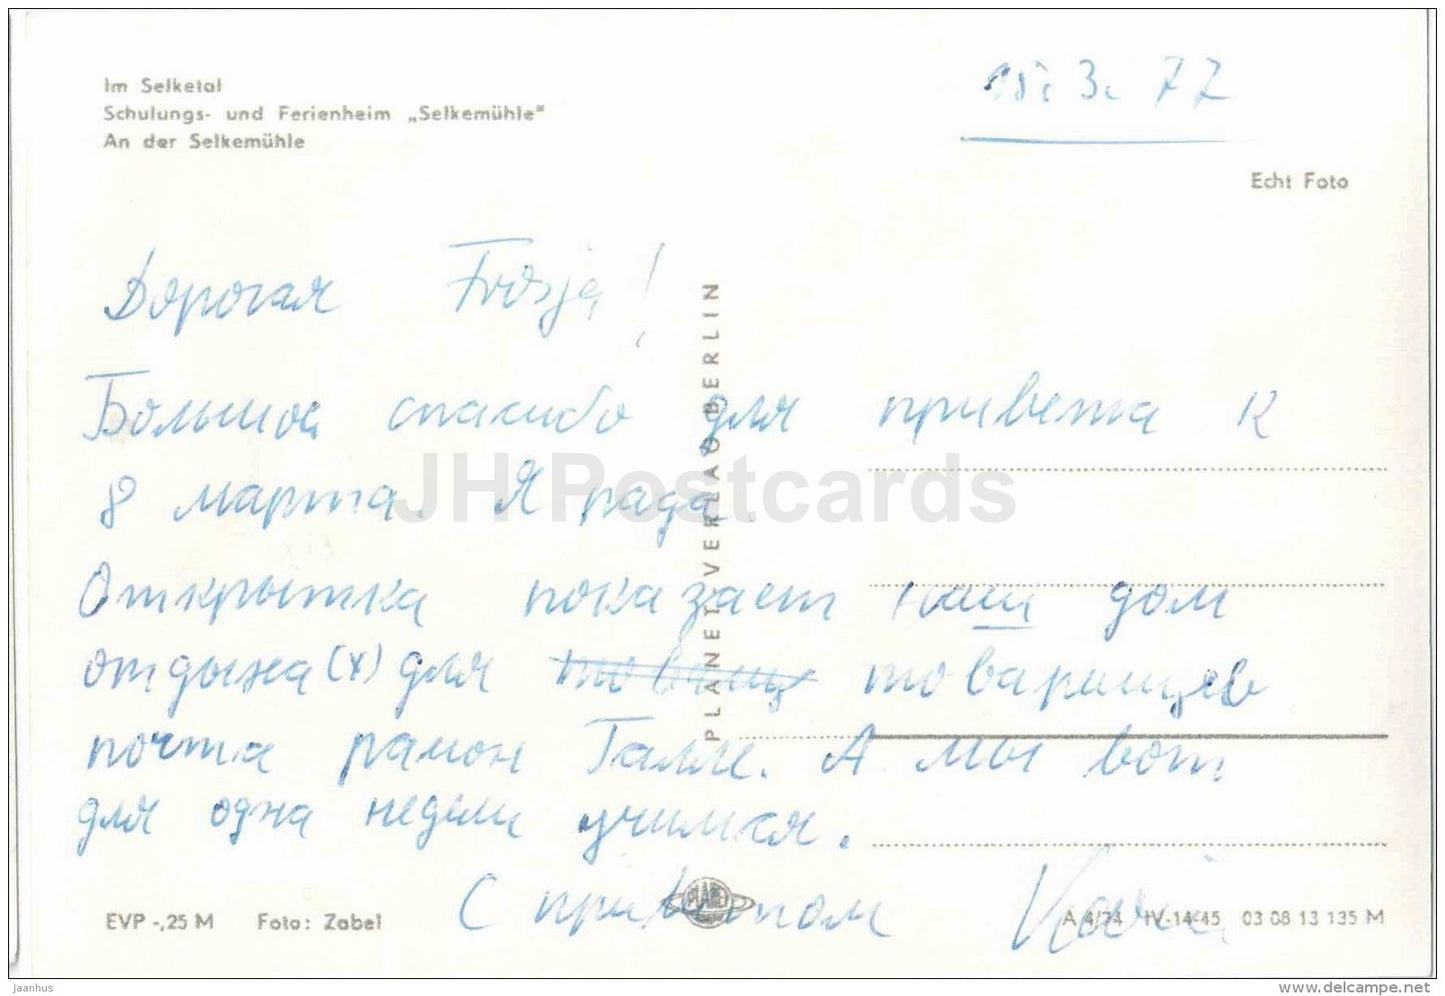 Im Selketal
Schulungs- und Ferienheim „Selkemühle"
An der Selkemühle
15. 3. 77
Echt Foto
Дорогая Frosja!
Большое спасибо для привета к
8 марта. Я рада.
Открытка показает наш дом
отдыха (х) для товарищев
почта район Галле. А мы вот
для одна недели учимся.
С приветом
PLANET VERLAG BERLIN
JH Postcards
PLANET
EVP -,25 M Foto: Zabel
A 4/74 IV-14-45 03 08 13 135 M
Jaanhus
delcampe.net